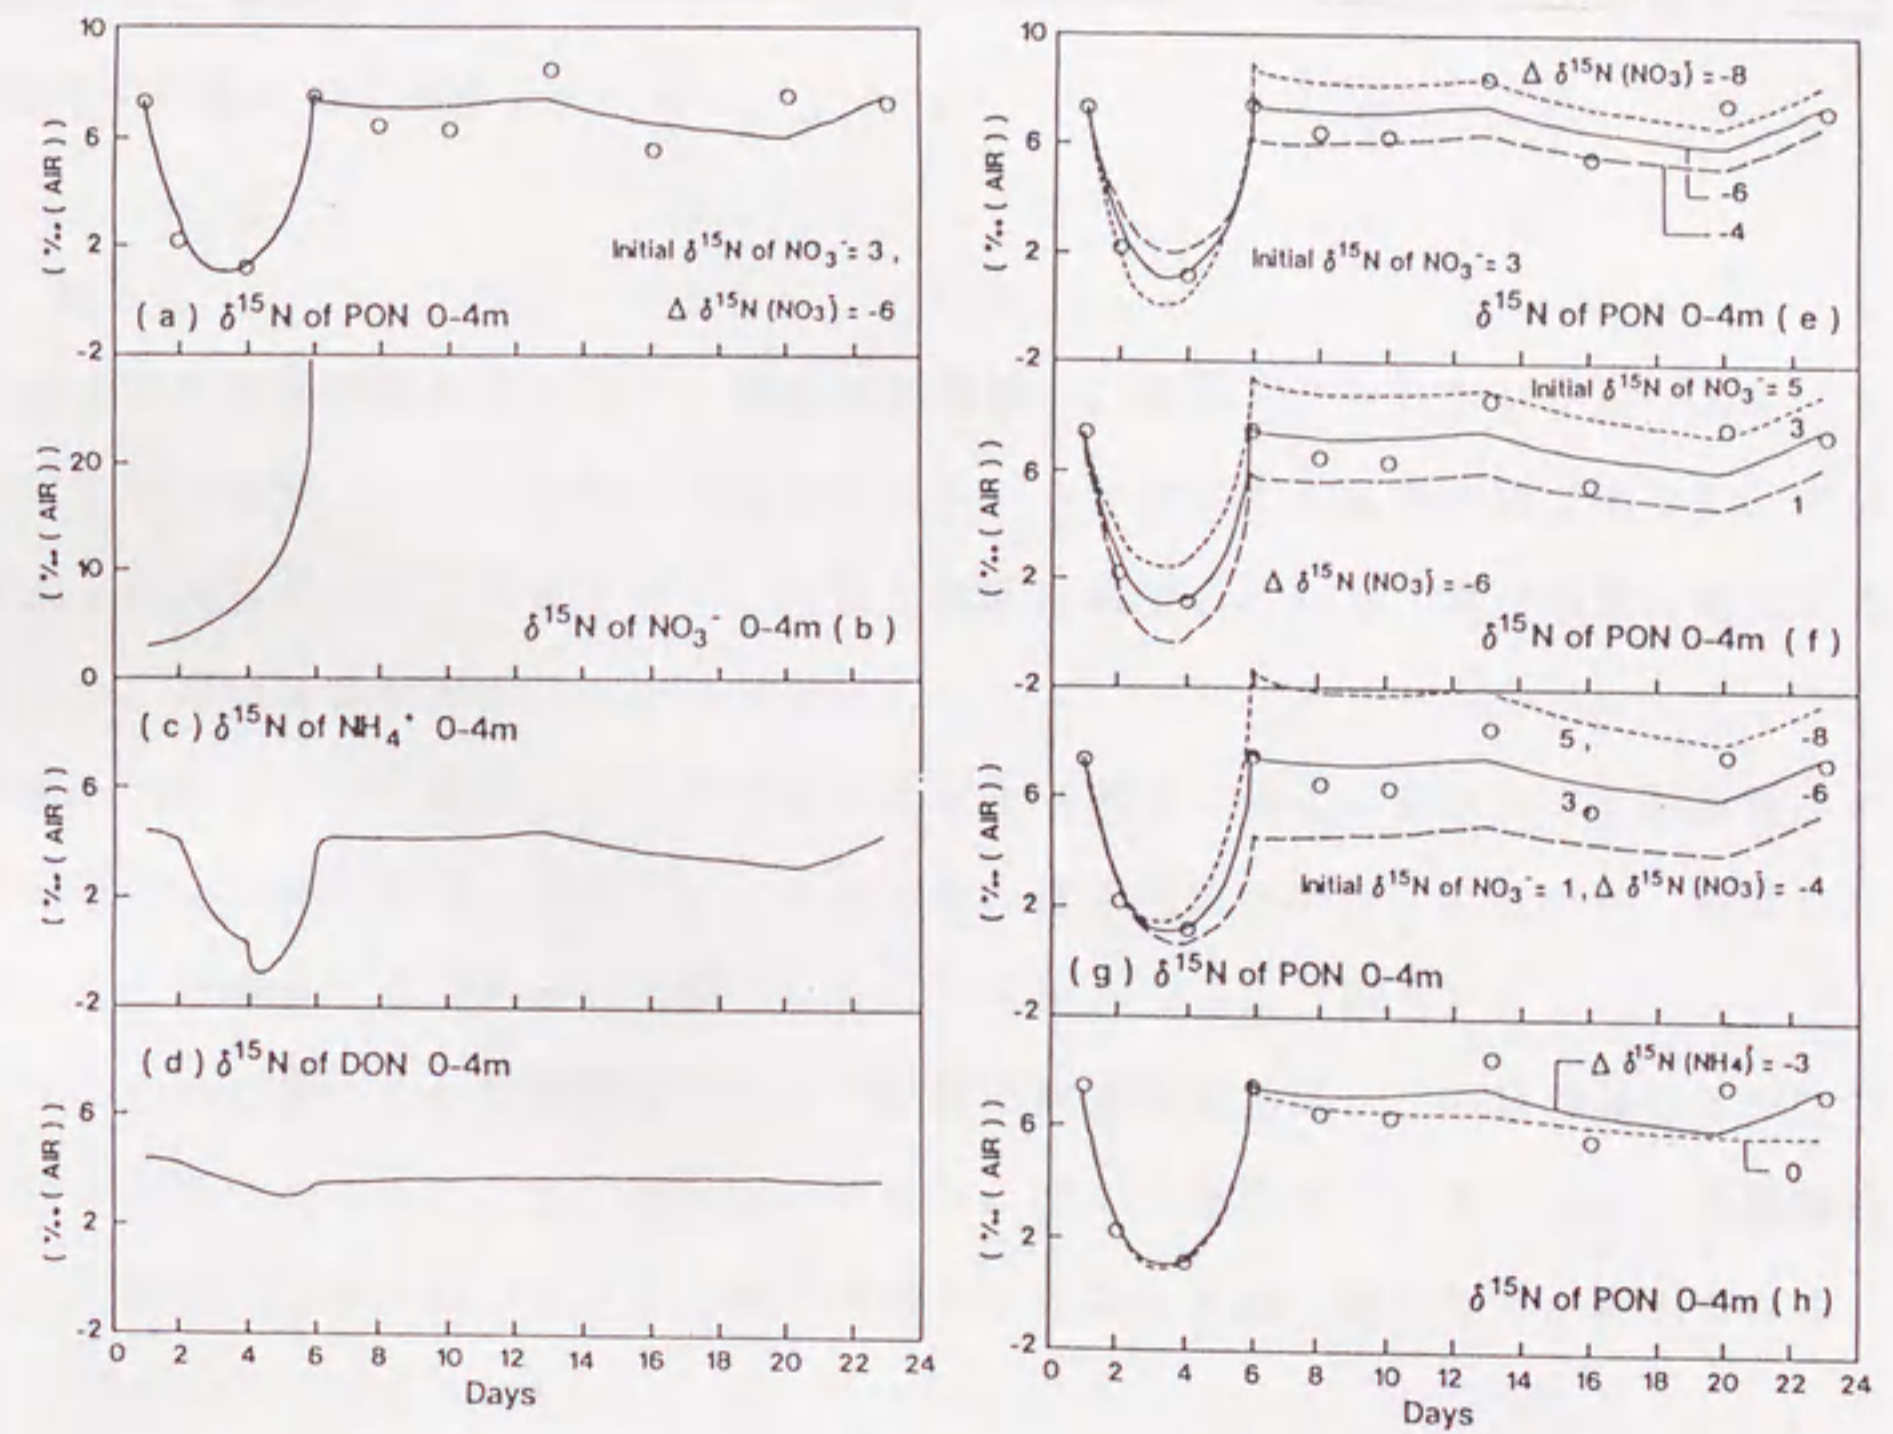 10
6
2
-2
(‰ (AIR))
Initial δ¹⁵N of NO₃⁻= 3,
Δ δ¹⁵N (NO₃⁻) = -6
(a) δ¹⁵N of PON 0-4m
20
10
0
(‰ (AIR))
δ¹⁵N of NO₃⁻ 0-4m (b)
(c) δ¹⁵N of NH₄⁺ 0-4m
6
2
-2
(‰ (AIR))
(d) δ¹⁵N of DON 0-4m
6
2
-2
(‰ (AIR))
0 2 4 6 8 10 12 14 16 18 20 22 24
Days
10
6
2
-2
(‰ (AIR))
Δ δ¹⁵N (NO₃⁻) = -8
-6
-4
Initial δ¹⁵N of NO₃⁻= 3
δ¹⁵N of PON 0-4m (e)
Initial δ¹⁵N of NO₃⁻= 5
3
1
6
2
-2
(‰ (AIR))
Δ δ¹⁵N (NO₃⁻) = -6
δ¹⁵N of PON 0-4m (f)
5, -8
3 -6
6
2
-2
(‰ (AIR))
Initial δ¹⁵N of NO₃⁻= 1, Δ δ¹⁵N (NO₃⁻) = -4
(g) δ¹⁵N of PON 0-4m
Δ δ¹⁵N (NH₄⁺) = -3
0
6
2
-2
(‰ (AIR))
δ¹⁵N of PON 0-4m (h)
0 2 4 6 8 10 12 14 16 18 20 22 24
Days